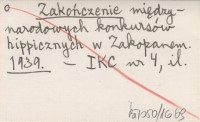 Zakończenie między-
narodowych konkursów
hippicznych w Zakopanem.
1939. – IKC nr 4, il.